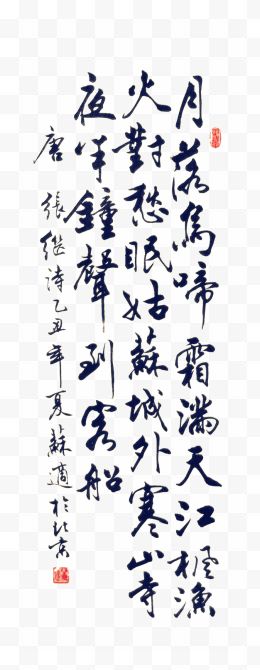 月落烏啼霜滿天江楓漁
火對愁眠姑蘇城外寒山寺
夜半鐘聲到客船
唐 張繼詩乙丑年夏蘇適於北京